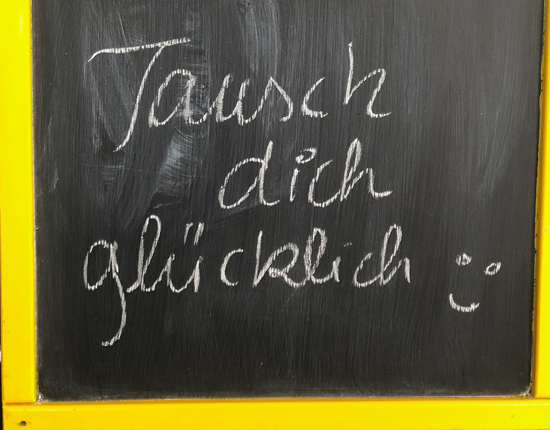 Tausch
dich
glücklich :-)